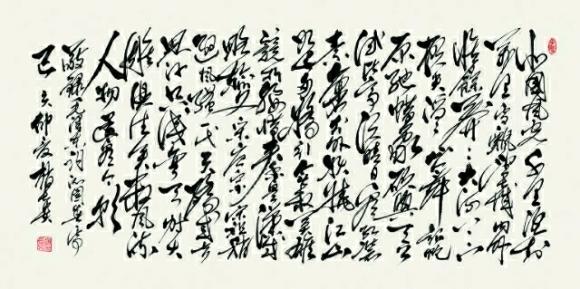 北国风光千里冰封
万里雪飘望长城内外
惟余莽莽大河上下
顿失滔滔山舞银蛇
原驰蜡象欲与天公
试比高须晴日看红装
素裹分外妖娆江山
如此多娇引无数英雄
竞折腰惜秦皇汉武
略输文采唐宗宋祖稍
逊风骚一代天骄成吉
思汗只识弯弓射大
雕俱往矣数风流
人物还看今朝
敬录毛泽东词沁园春雪
己亥仲夏